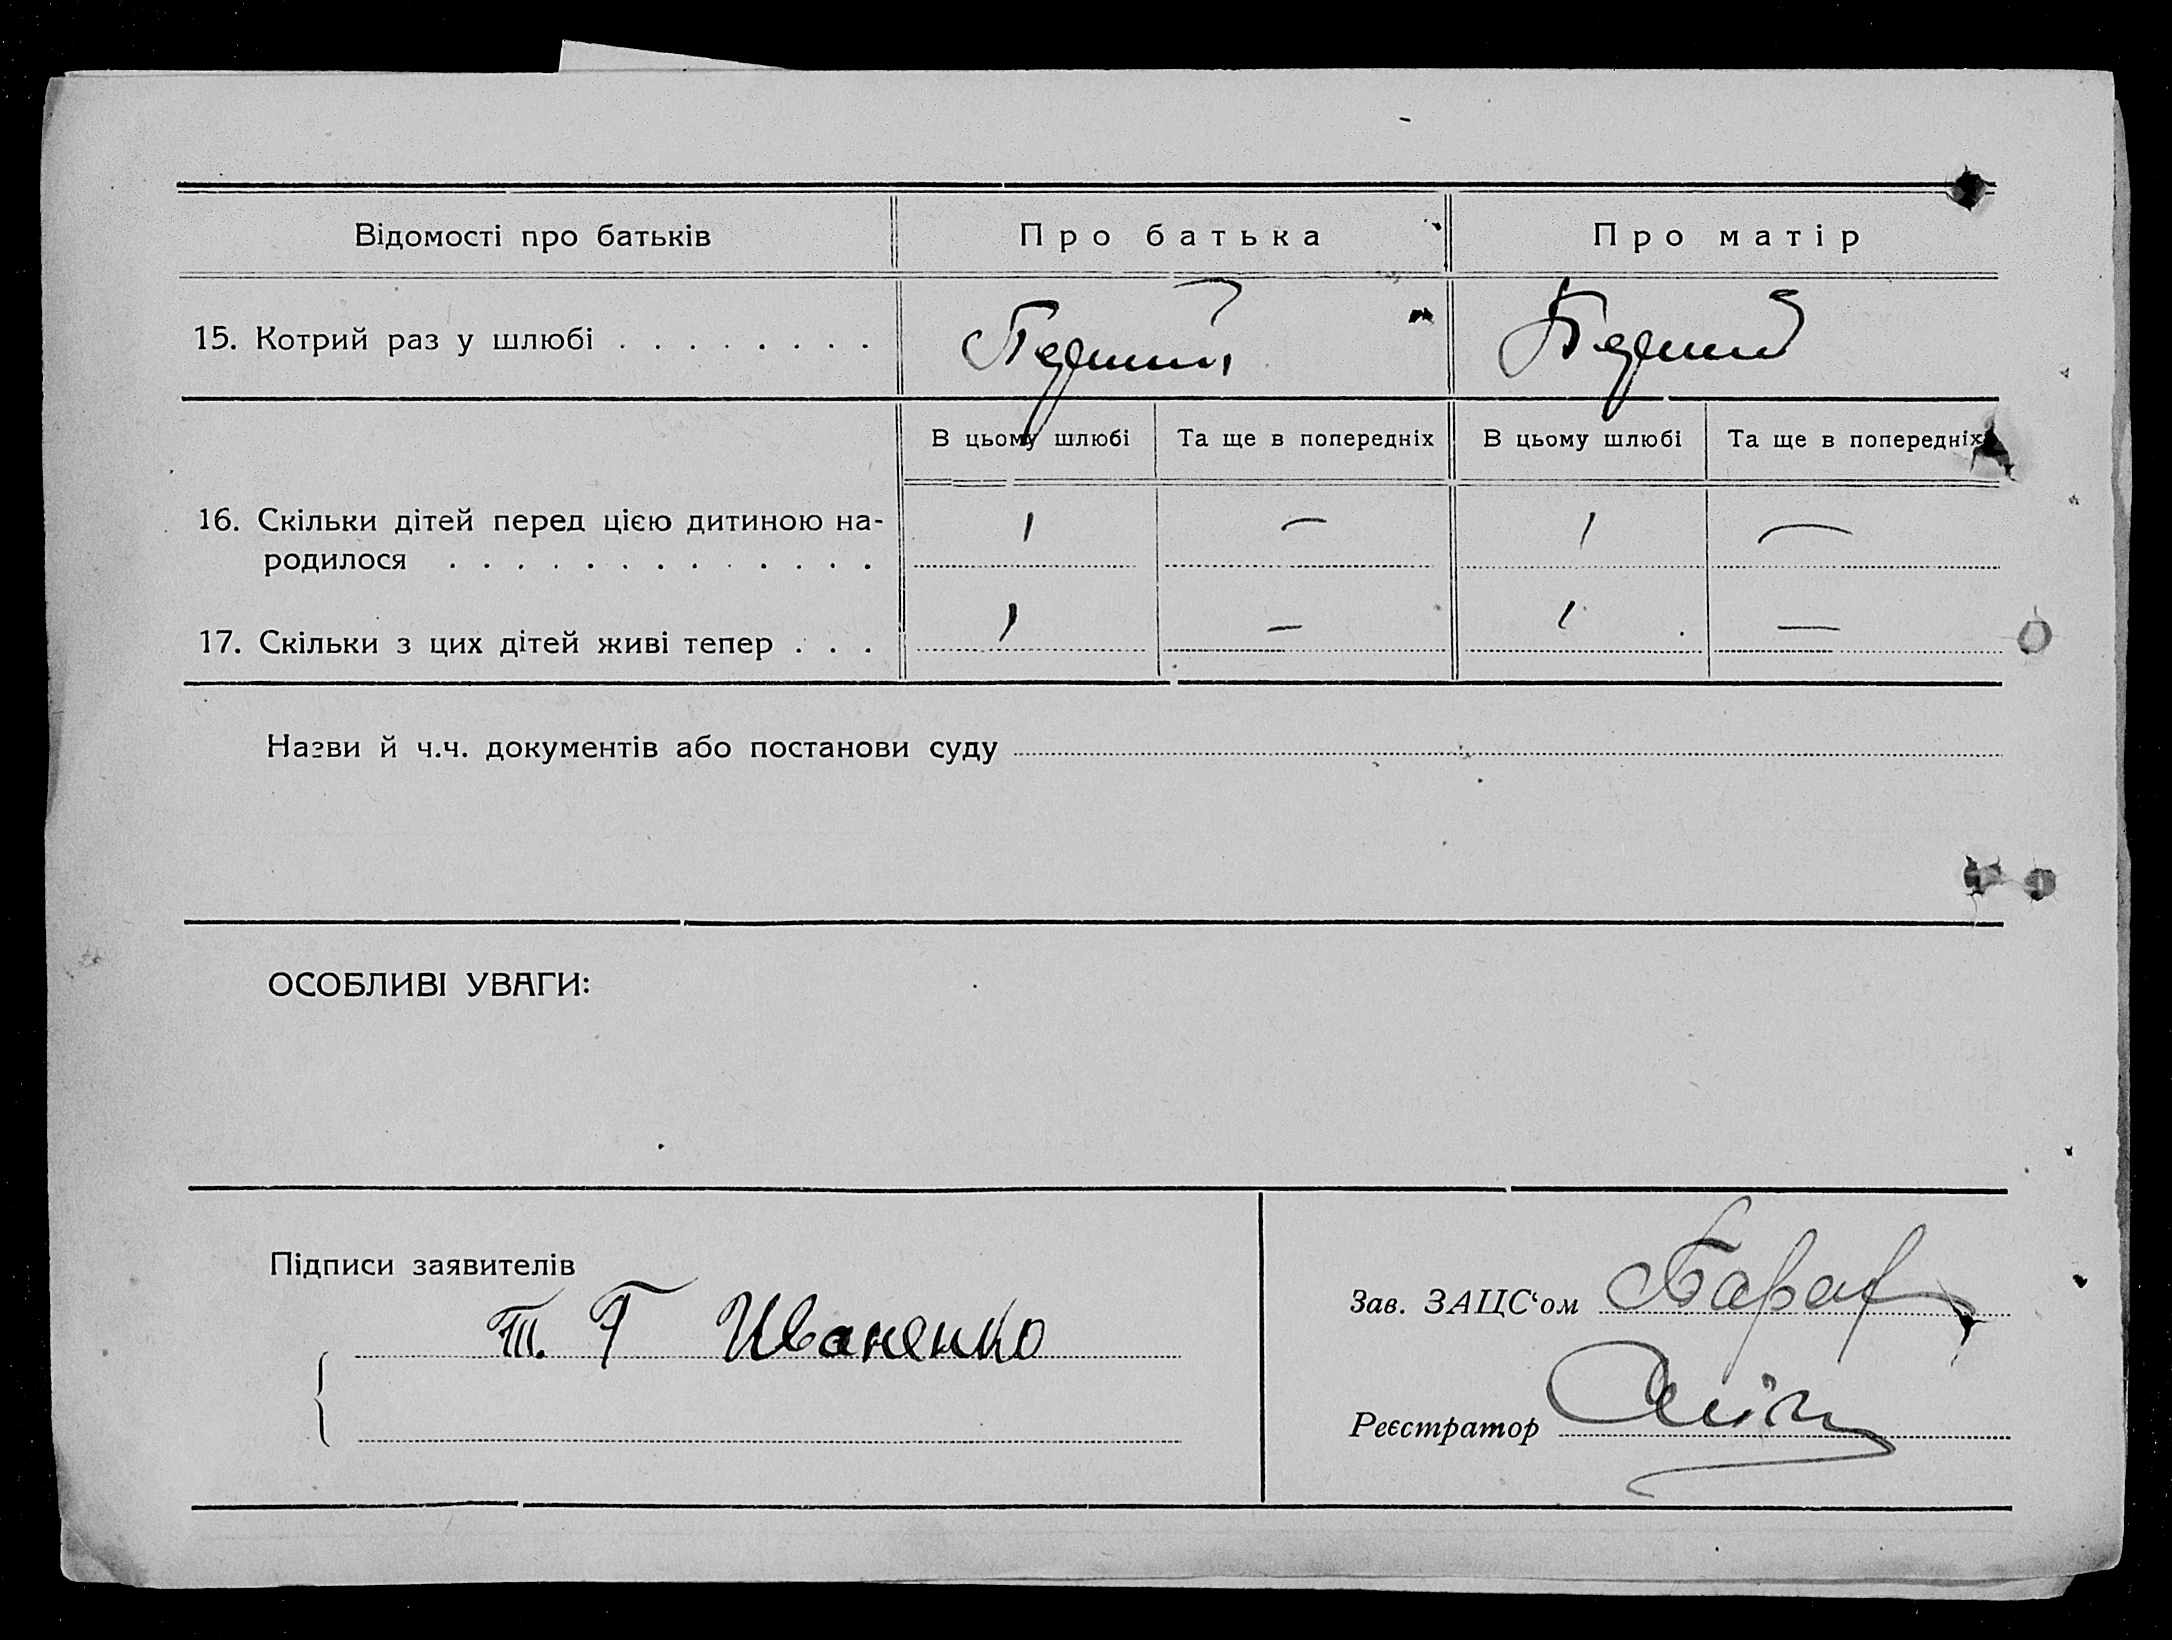 Відомості про батьків Про батька Про матір
15. Котрий раз у шлюбі . . . . . . . . Первий Первий
В цьому шлюбі Та ще в попередніх В цьому шлюбі Та ще в попередніх
16. Скільки дітей перед цією дитиною на-
родилося . . . . . . . . . . . . . 1 — 1 —
17. Скільки з цих дітей живі тепер . . . 1 — 1 —
Назви й ч.ч. документів або постанови суду
ОСОБЛИВІ УВАГИ:
Підписи заявителів
Т. Г Иваненко
Зав. ЗАЦС‘ом
Реєстратор